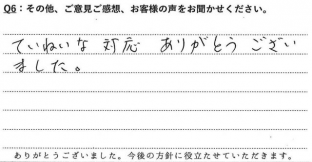 Q6：その他、ご意見ご感想、お客様の声をお聞かせください。
ていねいな 対応 ありがとう ござい
ました。
ありがとうございました。今後の方針に役立たせていただきます。